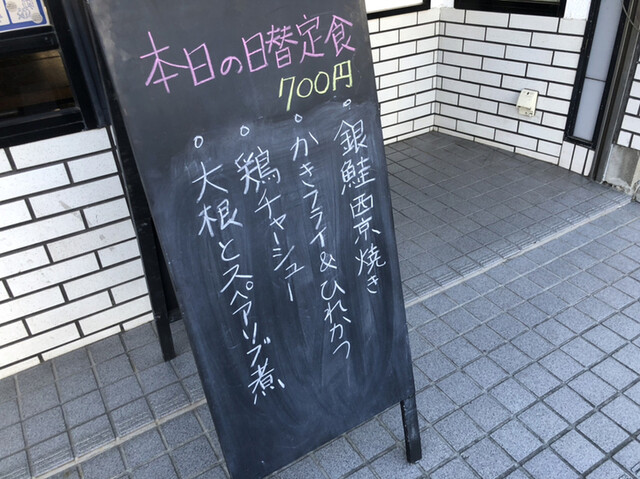 本日の日替定食
700円
。銀鮭西京焼き
。かきフライ&ひれかつ
。鶏チャーシュー
。大根とスペアリブ煮